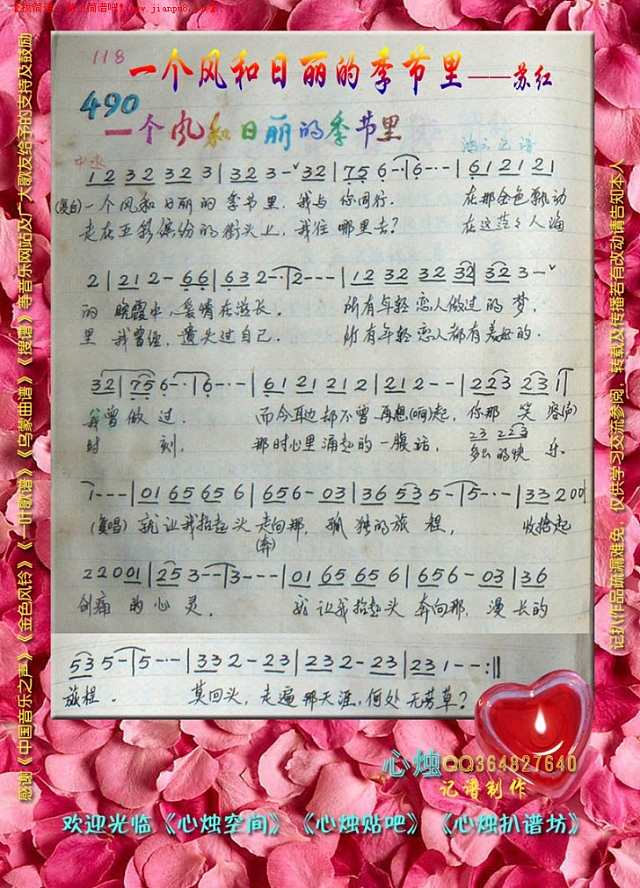 118
一个风和日丽的季节里——苏红
490
一个风和日丽的季节里
中速
1 2 3 2 3 2 3 | 3 2 3 - ˇ 3 2 | 7 5 6 - | 6 - · - | 6 1 2 1 2 1
(独白) 一个风和日丽的季节里，我与你同行． 在那金色飘动
走在五彩缤纷的街头上，我往哪里去？ 在这茫々人海
2 | 2 1 2 - 6 6 | 6 3 2 - 2 - - - | 1 2 3 2 3 2 3 2 | 3 2 3 - ˇ
的 晚霞中，在滋长． 所有年轻恋人做过的梦，
里 我曾经，遗失过自己． 所有年轻恋人都有美好的．
3 2 | 7 5 6 - · | 6 - · - | 6 1 2 1 2 1 2 | 2 1 2 - - | 2 2 3 2 3 1
我曾做过． 而今耳边却不曾再想(响)起，你那笑容(向)
时 刻， 那时心里涌起的一腹话，多么的快乐
1 - - - | 0 1 6 5 6 5 6 | 6 5 6 - 0 3 | 3 6 5 3 5 - | 5 - · - | 3 3 2 0 0
(演唱) 就让我抬起头走向那，孤独的旅程， 收拾起
(奔)
2 2 0 0 1 | 2 5 3 - - | 3 - - - | 0 1 6 5 6 5 6 | 6 5 6 - 0 3 | 3 6
创痛的心灵． 就让我抬起头 奔向那，漫长的
5 3 5 - | 5 - · - | 3 3 2 - 2 3 | 2 3 2 - 2 3 | 2 3 1 - - :||
旅程． 莫回头，走遍那天涯，何处无芳草？
心烛QQ364827640
记谱制作
欢迎光临《心烛空间》《心烛贴吧》《心烛扒谱坊》
感谢《中国音乐之声》《金色风铃》《一叶歌谱》《乌蒙曲谱》《搜谱》等音乐网站及广大歌友给予的支持及鼓励
记扒作品疏漏难免，仅供学习交流参阅，转载及传播若有改动请告知本人